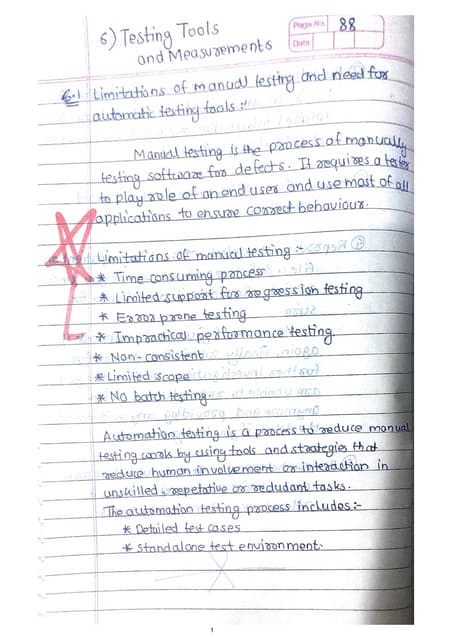 6) Testing Tools
and Measurements
Page No. 88
Date
6.1 Limitations of manual testing and need for
automatic testing tools :-
Manual testing is the process of manually
testing software for defects. It requires a tester
to play role of an end user and use most of all
applications to ensure correct behaviour.
Limitations of manual testing :-
* Time consuming process
* Limited support for regression testing
* Error prone testing
* Impractical performance testing.
* Non-consistent
* Limited scope
* NO batch testing.
Automation testing is a process to reduce manual
testing work by using tools and strategies that
reduce human involvement or interaction in
unskilled, repetative or redudant tasks.
The automation testing process includes:-
* Detailed test cases
* Standalone test environment.
1